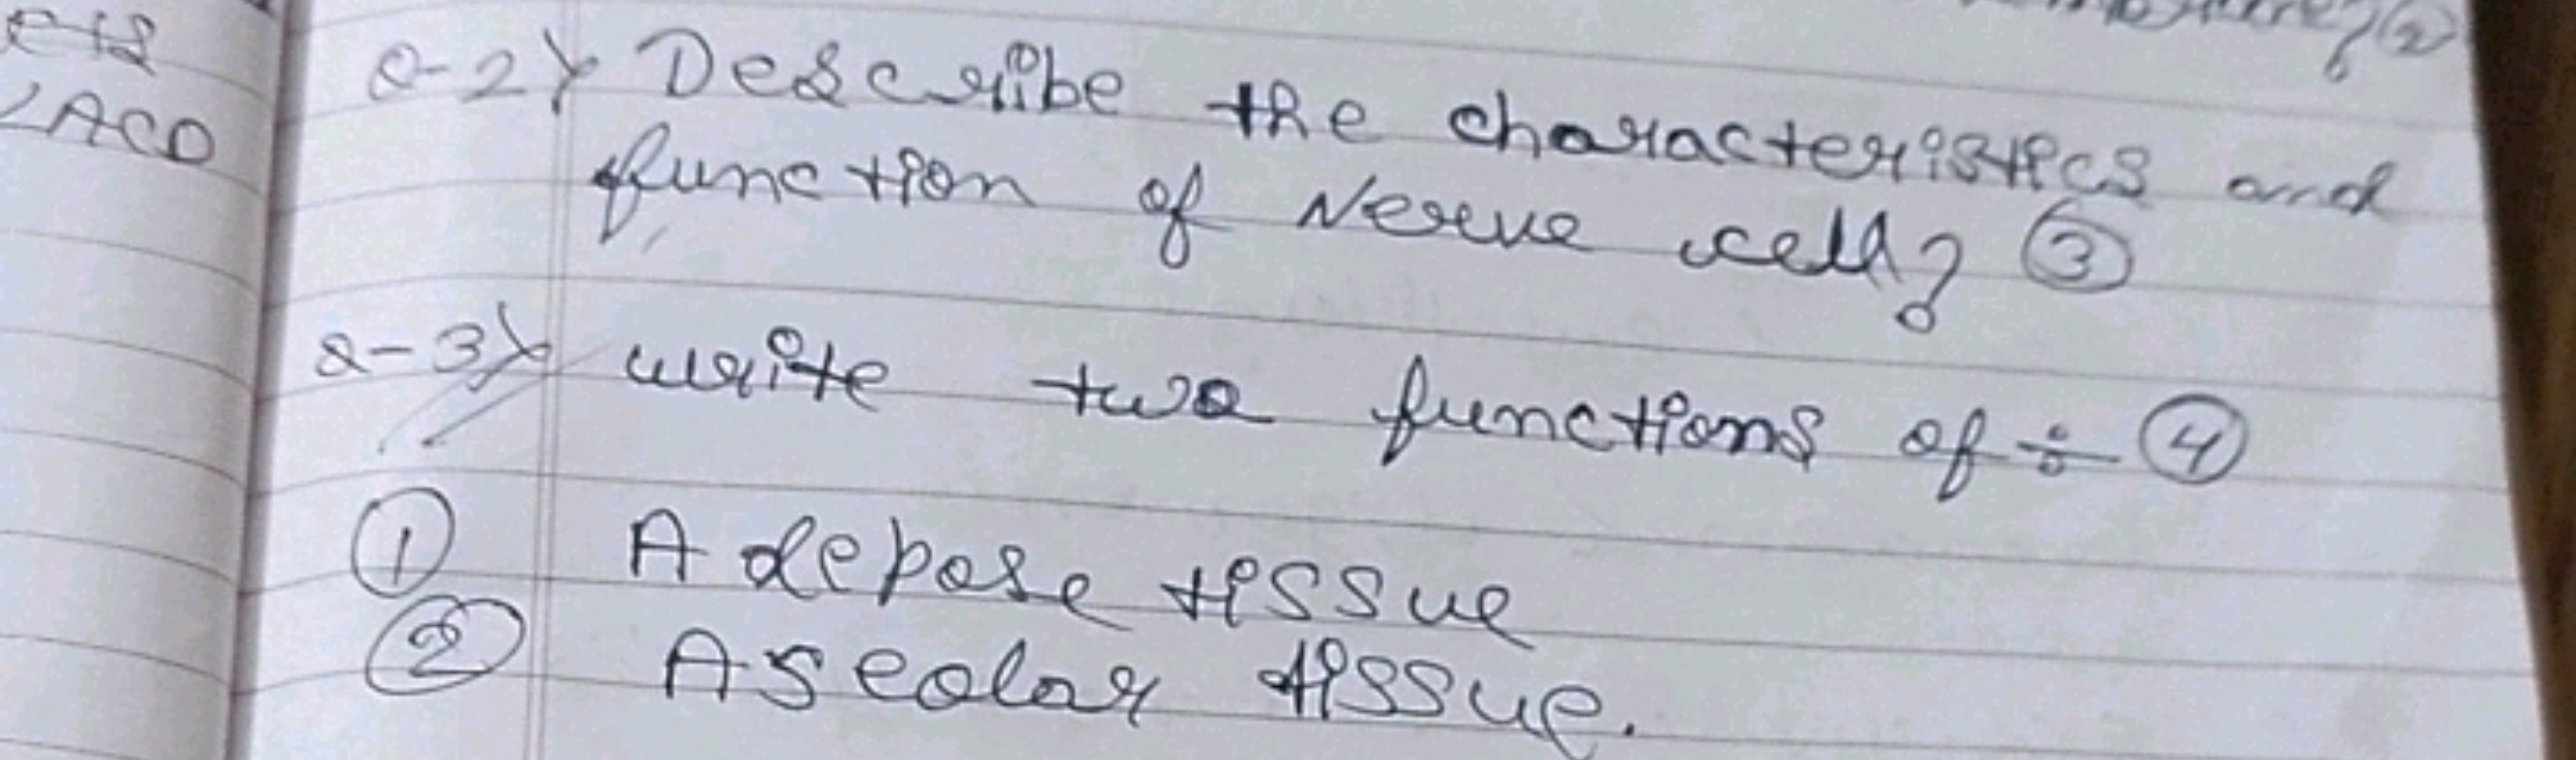 ∠ACD
Q-2) Describe the characteristics and
function of Nerve cell? ③
Q-3) write two functions of ÷ ④
① Adepose tissue
② Areolar tissue.